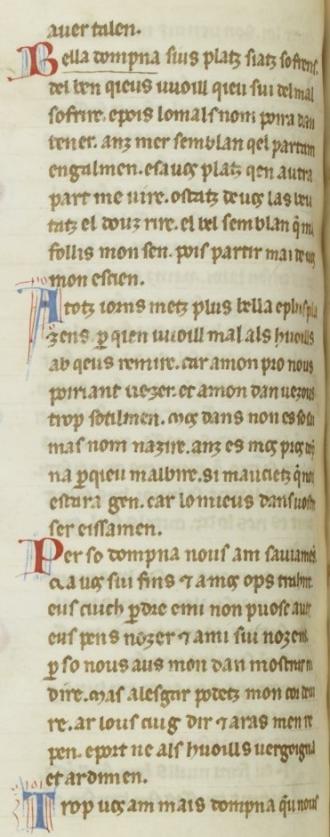 auer talen.
Bella dompna sius platz siatz sofrens.
del ben qieus uuoill qieu sui del mal
sofrire. epois lo mals nom poira dan
tener. anz mer semblan qel partam
engalmen. esauos platz qen autra
part me uire. ostatz deuos las beu
tatz el douz rire. el bel semblan q̄m
follis mon sen. pois partir mai de uos
mon escien.
A totz iorns metz plus bella eplus pla
zens ꝑ qien uuoill mal als huoills
ab qeus remire. car amon pro nous
poiriant uezer. et amon dan uezous
trop sotilmen. mos dans non es so sai
mas nom nazire. anz es mos pros
na ꝑqieu malbire. si maucietz q̄ nous
estara gen. car lo mieus dans uostr
ser eissamen.
Per so dompna nous am sauiamen
ca uos sui fins ⁊ amos ops traire.
eus cuich ꝑdre emi non puosc auer
eus pens nozer ⁊ ami sui nozens.
ꝑ so nous aus mon dan mostrar ni
dire. mas alesgar podetz mon cor deui
re. ar lous cuig dir ⁊ aras men re
pen. eport ne als huoills uergoigna
et ardimen.
Trop uos am mais dompna q̄u nous